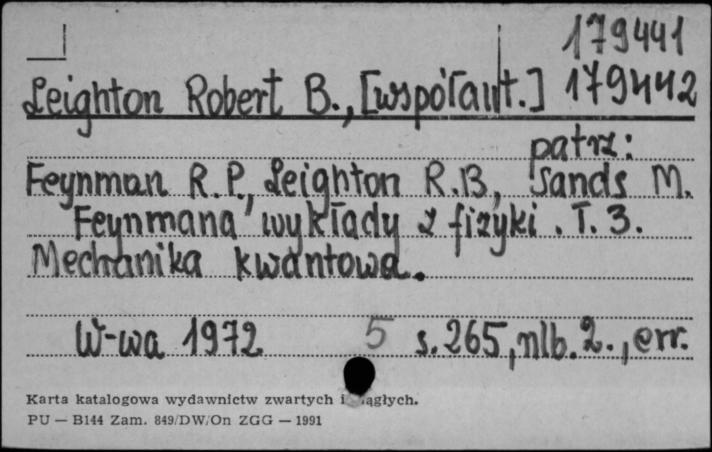 179441
Leighton Robert B., [współaut.] 179442
patrz:
Feynman R.P., Leighton R.B, Sands M.
Feynmana wykłady z fizyki. T. 3.
Mechanika kwantowa.
W-wa 1972 5 s. 265, nlb. 2., err.
Karta katalogowa wydawnictw zwartych i ciągłych.
PU — B144 Zam. 849/DW/On ZGG — 1991